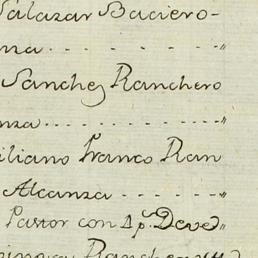 Salazar Baciero-
nza . . . . . . . "
Sanchez Ranchero
nza . . . . . . . . . . "
iliano Franco Ran
Alcanza . . . . . . "
Pastor con 1 p.r Deve